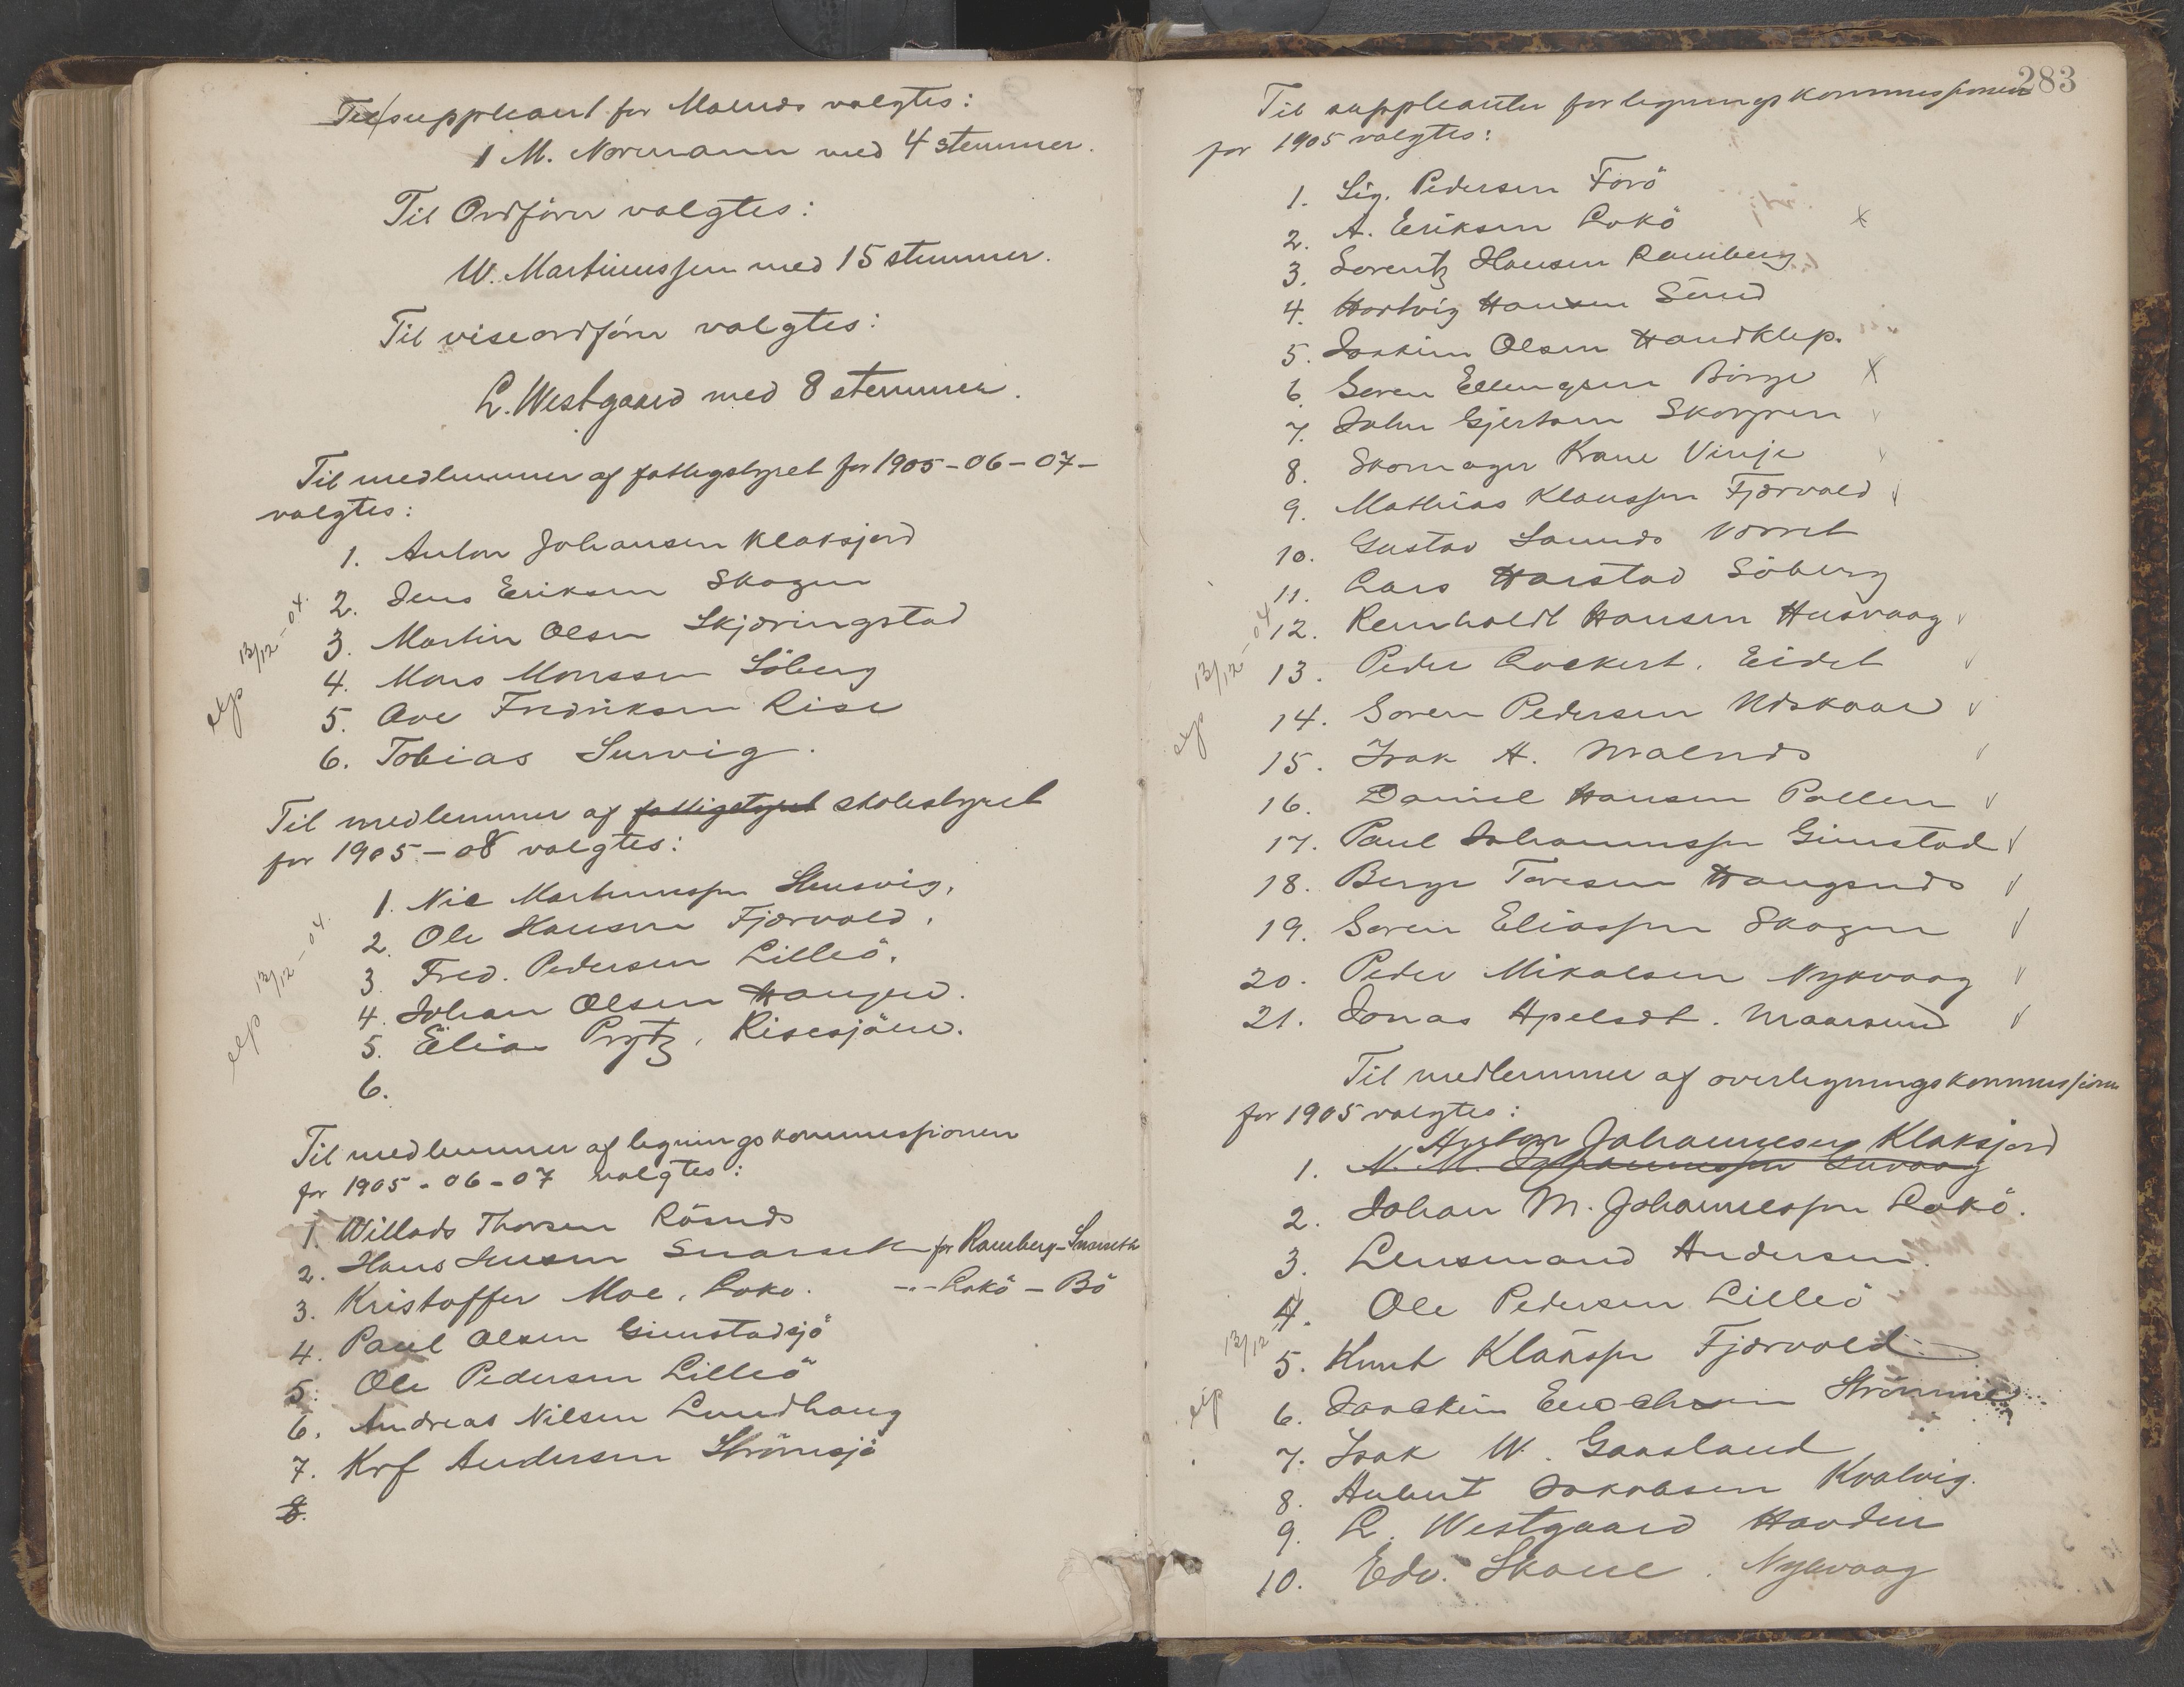 Til suppleant for Malnds valgtes:
1 M. Normann med 4 stemmer.
Til Ordförer valgtes:
W. Martinussen med 15 stemmer.
Til viseordförer valgtes:
L. Westgaard med 8 stemmer.
Til medlemmer af fattigstyret for 1905-06-07-
valgtes:
1. Anton Johansen Klaksjord
2. Jens Eriksen Skogen
3. Martin Olsen Skjæringstad
4. Mons Monssen Söberg
5. Ove Fredriksen Rise
6. Tobias Survig.
exp 13/12-04.
Til medlemmer af fattigstyret skolestyret
for 1905-08 valgtes:
1. Nic Martinussen Stensvig.
2. Ole Hansen Fjærvold.
3. Fred. Pedersen Lilleö.
4. Johan Olsen Haugen.
5. Elias Prytz, Risesjöen.
6.
exp 13/12-04.
Til medlemmer af ligningskommissionen
for 1905-06-07 valgtes:
1. Willads Thorsen Rösnds
2. Hans Jensen Snarset for Ramberg-Snarseth
3. Kristoffer Moe, Lokö. -"- Lokö - Bö
4. Paul Olsen Gimstadsjö
5. Ole Pedersen Lilleö
6. Andreas Nilsen Lundhaug
7. Krf Andersen Strömsjö
8.
283
Til suppleanter for ligningskommissionen
for 1905 valgtes:
1. Sig. Pedersen Forö
2. A. Eriksen Lokö x
3. Lorentz Hansen Ramberg
4. Hartvig Hansen Sund
5. Joakim Olsen Haudklep.
6. Soren Ellingsen Börge x
7. John Gjertsen Skorpen
8. Skomager Krane Vinje
9. Mathias Klaussen Fjærvold
10. Gustav Vorret
11. Lars Harstad Söberg
12. Reinholdt Hansen Husvaag
13. Peder Lockert. Eidet
14. Soren Pedersen Udskaar
15. Isak A. Malnds
16. Daniel Hansen Pollen
17. Paul Johannssen Gimstad
18. Berge Toresen Haugsnds
19. Soren Eliassen Skogen
20. Peder Mikalsen Nykvaag
21. Jonas Apelsdt. Maarsund
exp 13/12-04
Til medlemmer af overligningskommissionen
for 1905 valgtes:
Anton Johannesen Klaksjord
1. N. M. Johannessen
2. Johan M. Johannessen Lokö.
3. Lensmand Andersen.
4. Ole Pedersen Lilleö
5. Knut Klaussen Fjærvold
6. Joachim Enochsen Strömme
7. Isak W. Gaasland
8. Hubert Jakobsen Kvalvig.
9. L. Westgaard Hovden
10. Edv. Skane. Nykvaag
exp 13/12